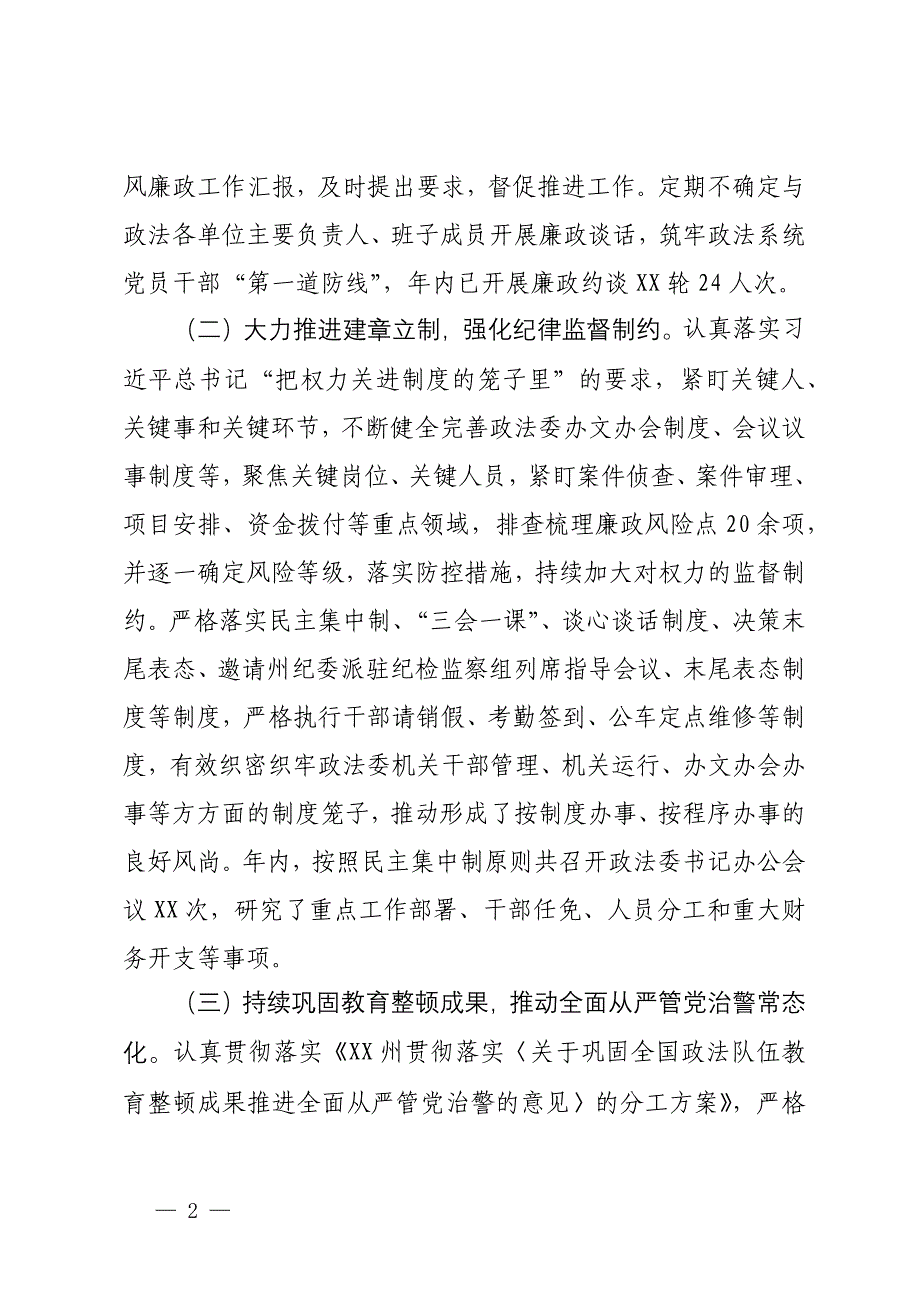 风廉政工作汇报，及时提出要求，督促推进工作。定期不确定与
政法各单位主要负责人、班子成员开展廉政谈话，筑牢政法系统
党员干部“第一道防线”，年内已开展廉政约谈 XX 轮 24 人次。
（二）大力推进建章立制，强化纪律监督制约。认真落实习
近平总书记“把权力关进制度的笼子里”的要求，紧盯关键人、
关键事和关键环节，不断健全完善政法委办文办会制度、会议议
事制度等，聚焦关键岗位、关键人员，紧盯案件侦查、案件审理、
项目安排、资金拨付等重点领域，排查梳理廉政风险点 20 余项，
并逐一确定风险等级，落实防控措施，持续加大对权力的监督制
约。严格落实民主集中制、“三会一课”、谈心谈话制度、决策末
尾表态、邀请州纪委派驻纪检监察组列席指导会议、末尾表态制
度等制度，严格执行干部请销假、考勤签到、公车定点维修等制
度，有效织密织牢政法委机关干部管理、机关运行、办文办会办
事等方方面的制度笼子，推动形成了按制度办事、按程序办事的
良好风尚。年内，按照民主集中制原则共召开政法委书记办公会
议 XX 次，研究了重点工作部署、干部任免、人员分工和重大财
务开支等事项。
（三）持续巩固教育整顿成果，推动全面从严管党治警常态
化。认真贯彻落实《XX 州贯彻落实〈关于巩固全国政法队伍教
育整顿成果推进全面从严管党治警的意见〉的分工方案》，严格
— 2 —